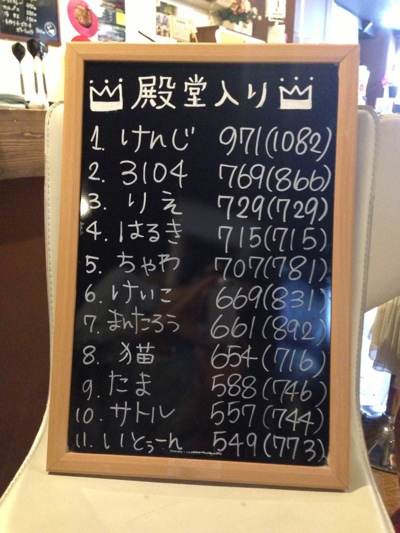 殿堂入り
1. けんじ 971(1082)
2. 3104 769(866)
3. りえ 729(729)
4. はるき 715(715)
5. ちゃわ 707(781)
6. けいこ 669(831)
7. まんたろう 661(892)
8. 猫 654(716)
9. たま 588(746)
10. サトル 557(744)
11. いとぅーん 549(773)